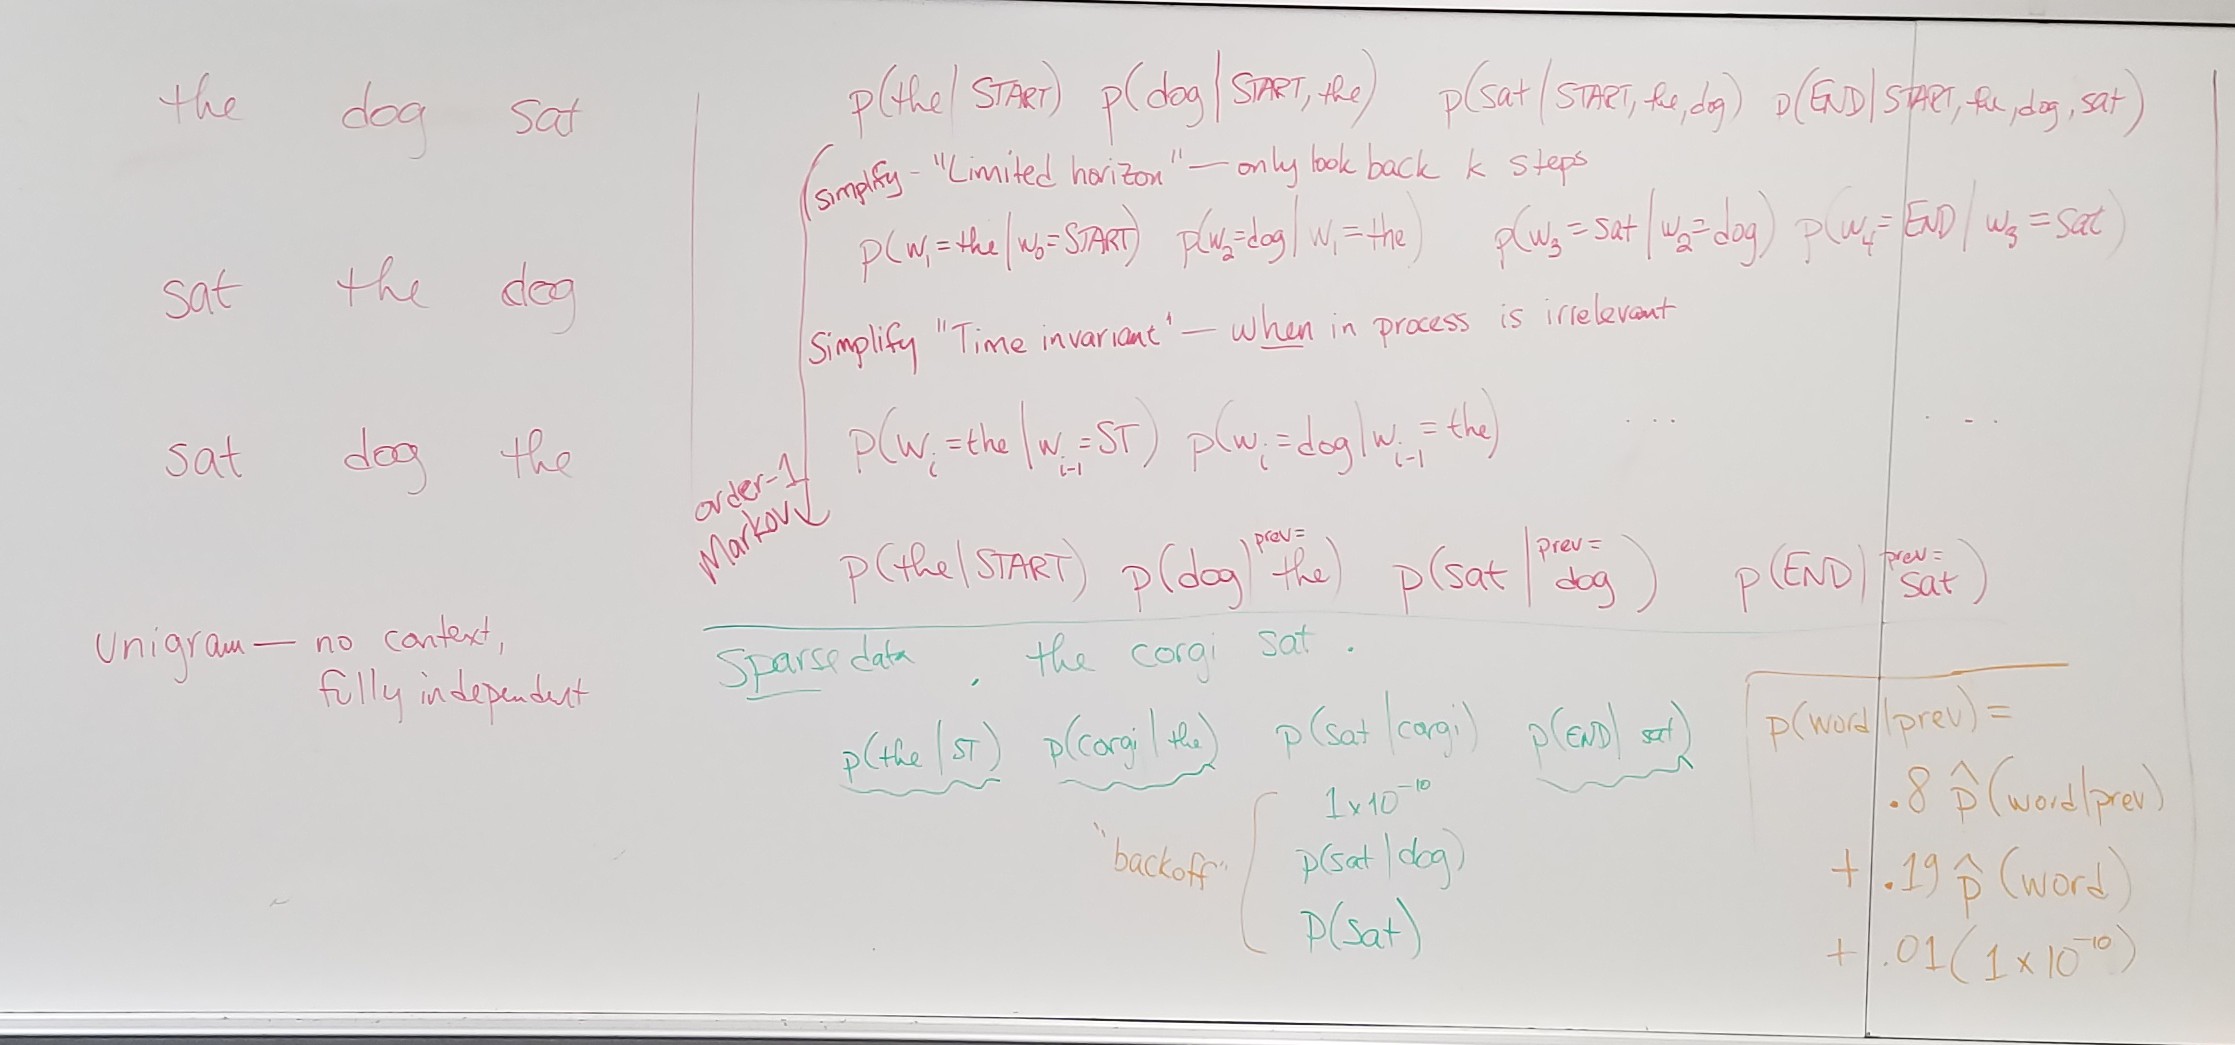 the dog sat
sat the dog
sat dog the
Unigram — no context,
fully independent
p(the | START) p(dog | START, the) p(sat | START, the, dog) p(END | START, the, dog, sat)
simplify - "Limited horizon" — only look back k steps
p(w₁=the | w₀=START) p(w₂=dog | w₁=the) p(w₃=sat | w₂=dog) p(w₄=END | w₃=sat)
Simplify "Time invariant" — when in process is irrelevant
p(wᵢ=the | wᵢ₋₁=ST) p(wᵢ=dog | wᵢ₋₁=the) ... ...
order-1
Markov
p(the | START) p(dog | prev= the) p(sat | prev= dog) p(END | prev= sat)
Sparse data , the corgi sat .
p(the | ST) p(corgi | the) p(sat | corgi) p(END | sat)
"backoff"
1 x 10⁻¹⁰
p(sat | dog)
p(sat)
p(word | prev) =
.8 p̂(word | prev)
+ .19 p̂(word)
+ .01 (1 x 10⁻¹⁰)